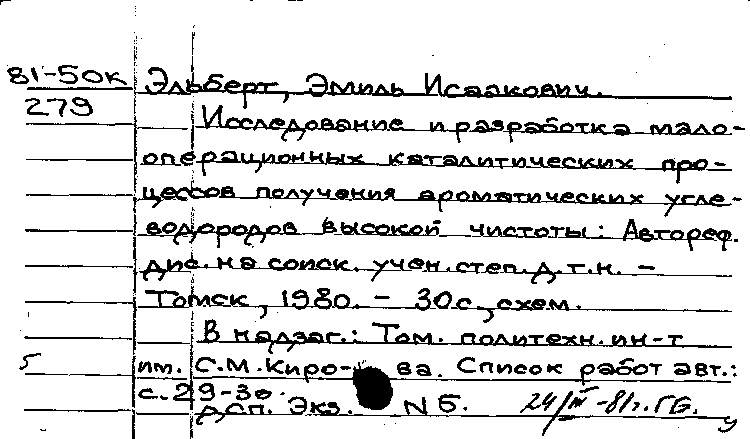 81-50к Эльберт, Эмиль Исаакович.
279
Исследование и разработка мало-
операционных каталитических про-
цессов получения ароматических угле-
водородов высокой чистоты: Автореф.
дис. на соиск. учен. степ. д.т.н. –
Томск, 1980. – 30с., схем.
В надзаг.: Том. политехн. ин-т
5 им. С.М.Киро- ва. Список работ авт.:
с. 29-30.
дсп. Экз. N 5. 24/III-81г. ГБ.
у